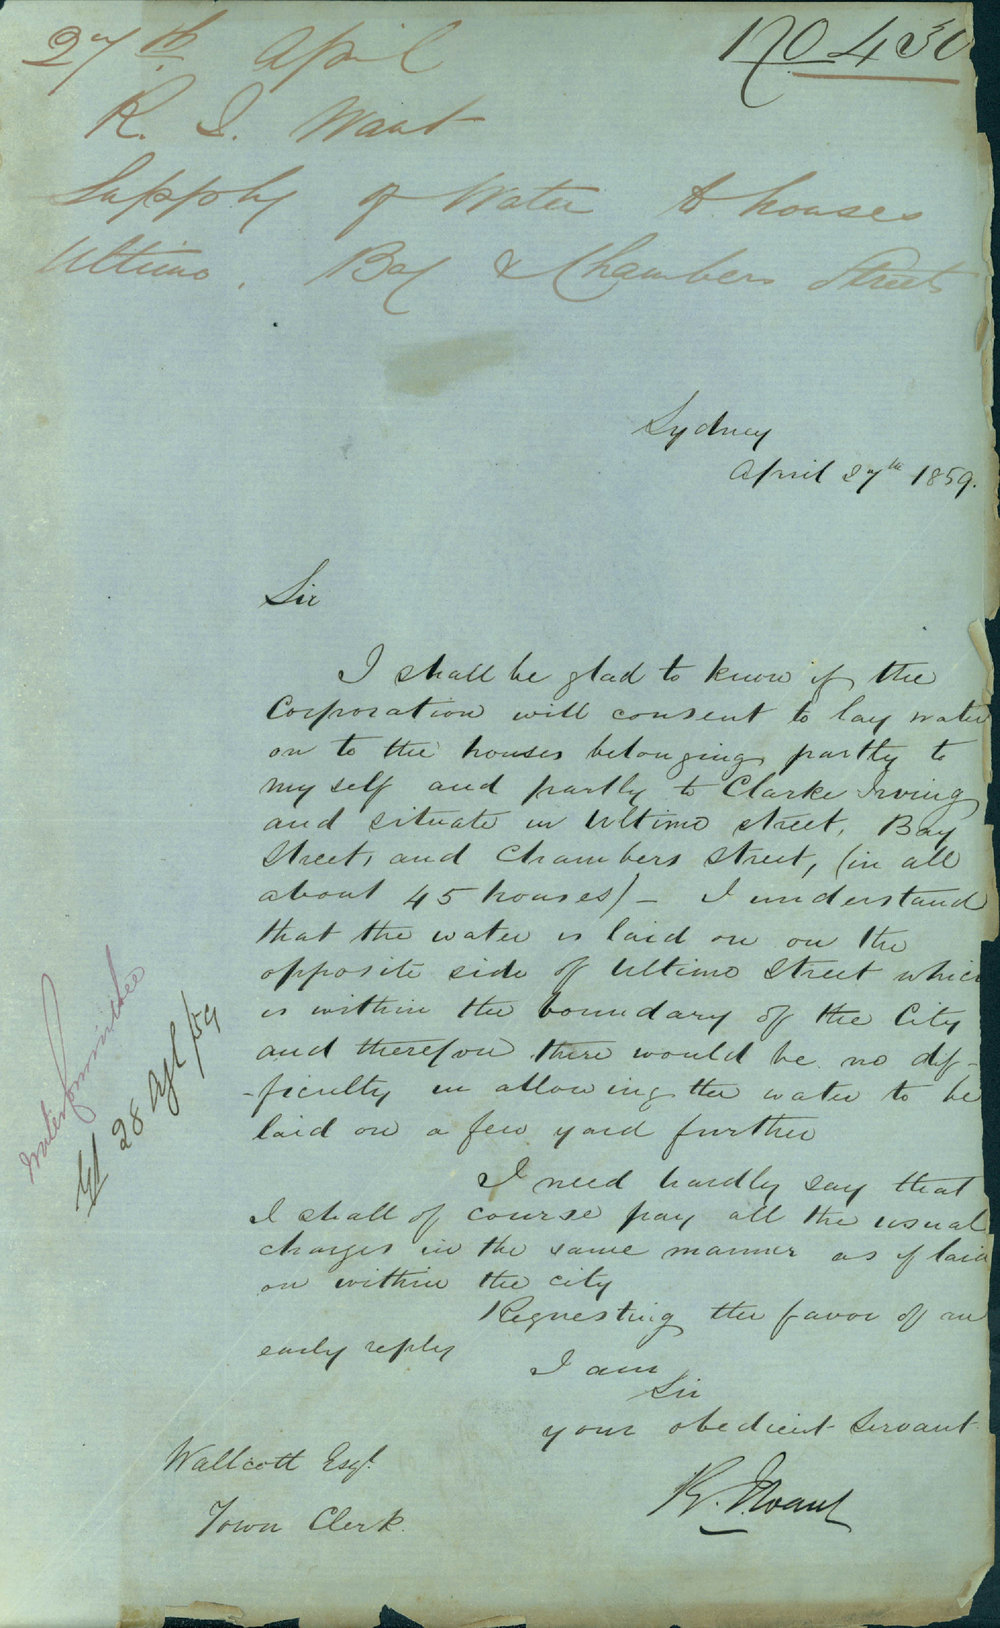 27th April
No 430
R. J. Want
Supply of Water to houses
Ultimo, Bay & Chambers Streets
Sydney
April 27th 1859.
Sir
I shall be glad to know if the
Corporation will consent to lay water
on to the houses belonging partly to
my self and partly to Clarke Irving
and situate in Ultimo street, Bay
Street, and Chambers street, (in all
about 45 houses) - I understand
that the water is laid on on the
opposite side of Ultimo Street which
is within the boundary of the City
and therefore there would be no dif-
-ficulty in allowing the water to be
laid on a few yard further
I need hardly say that
I shall of course pay all the usual
charges in the same manner as if laid
on within the city
Requesting the favor of an
early reply
I am
Sir
your obedient Servant
R. J. Want
Wallcott Esqr.
Town Clerk.
Water Committee
28 Apl /59